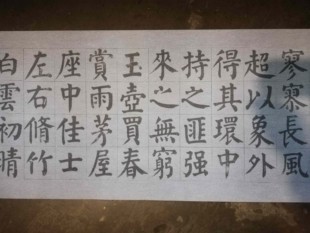 寥寥長風
超以象外
得其環中
持之匪强
來之無窮
玉壺買春
賞雨茅屋
座中佳士
左右脩竹
白雲初晴